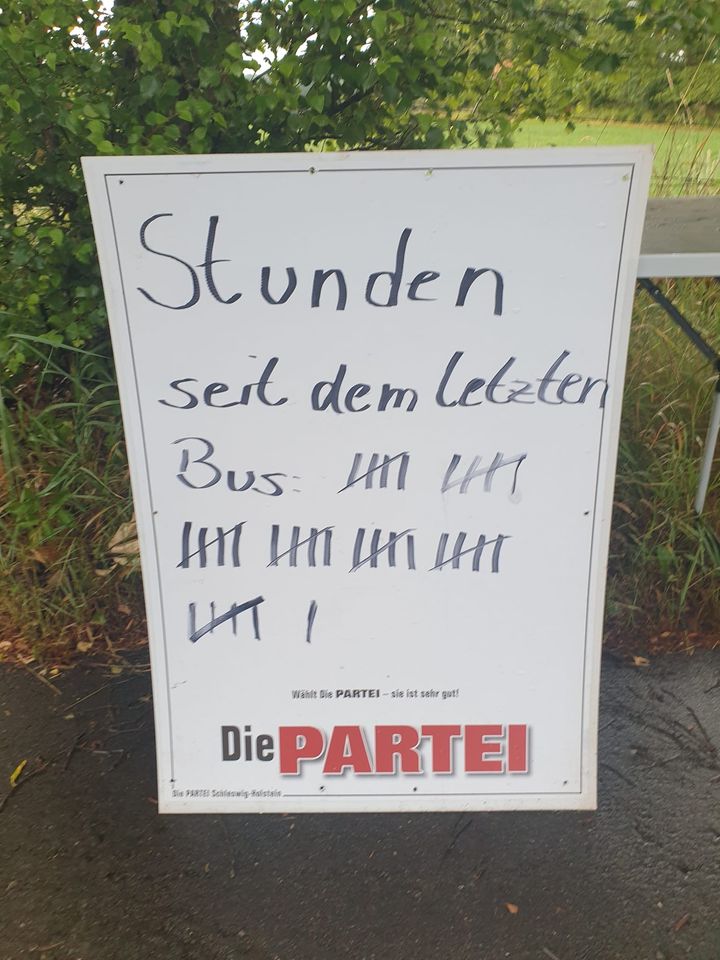 Stunden
seit dem letzten
Bus: 𝍸 𝍸
𝍸 𝍸 𝍸 𝍸
𝍸 |
Wählt Die PARTEI – sie ist sehr gut!
Die PARTEI
Die PARTEI Schleswig-Holstein